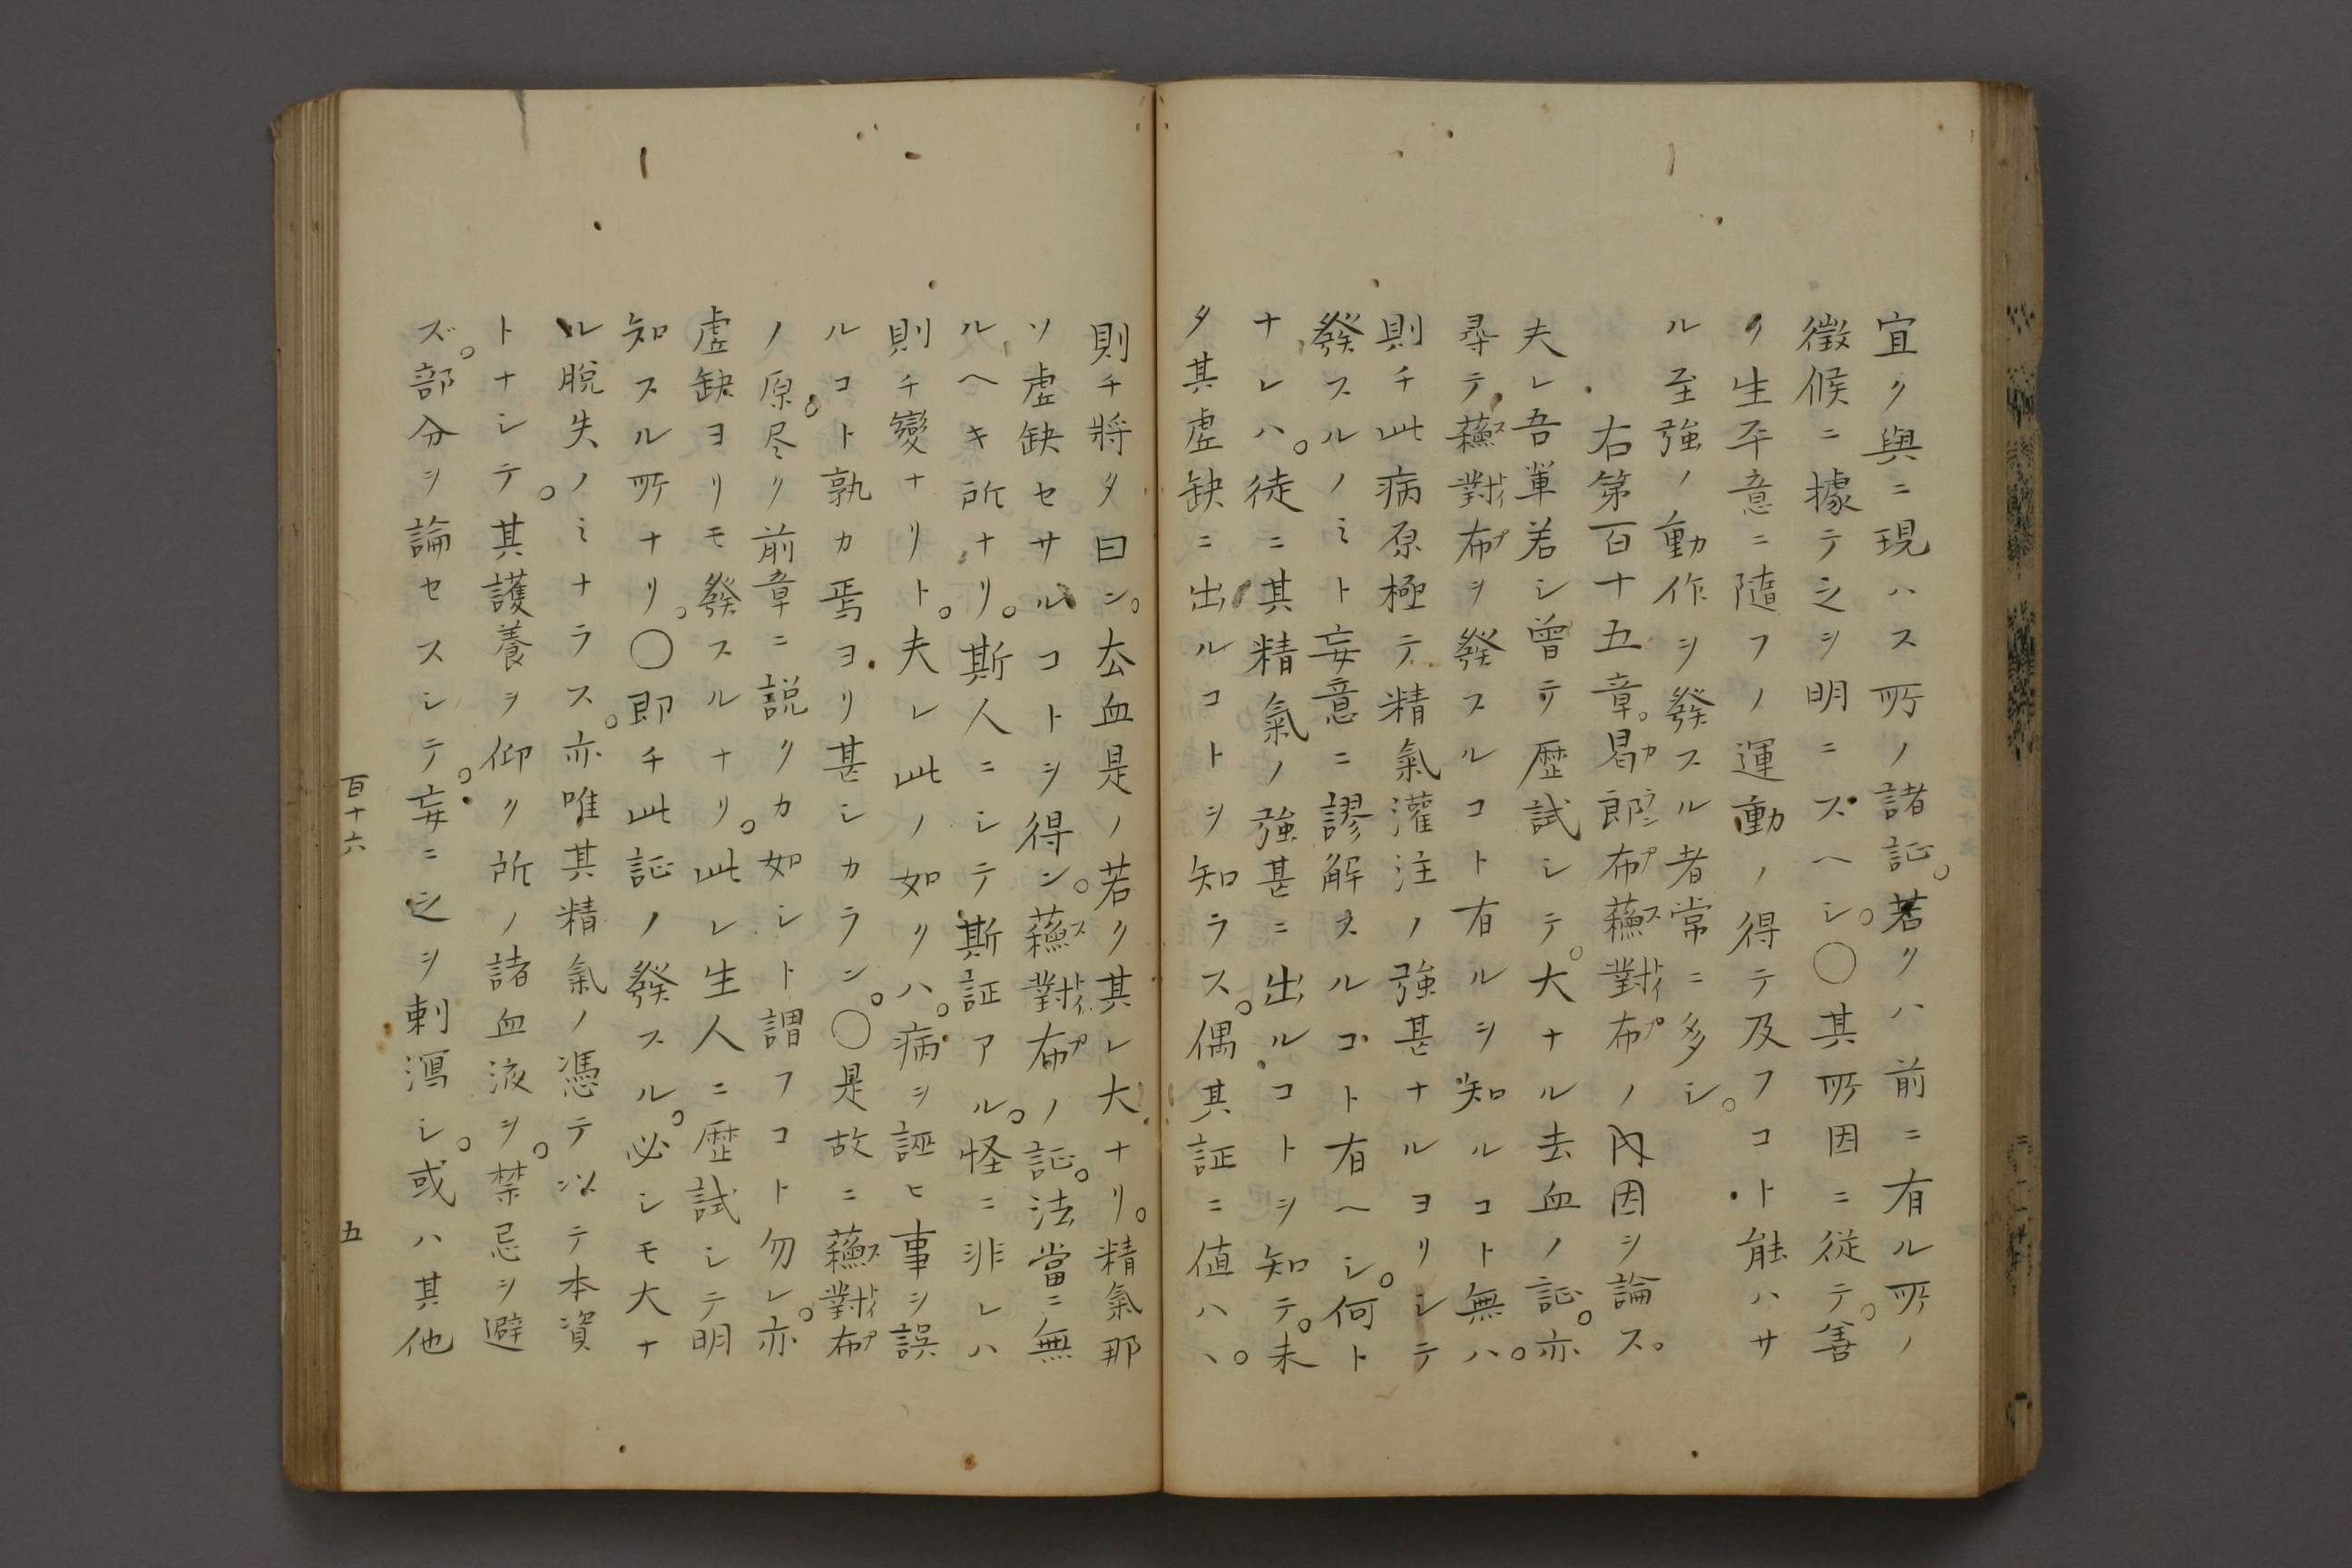 宜ク與ニ現ハス所ノ諸証。若クハ前ニ有ル所ノ
徴候ニ據テ之ヲ明ニスヘシ。〇其所因ニ従テ。善
ク生平意ニ隨フノ運動ノ得テ及フコト能ハサ
ル至強ノ動作ヲ發スル者常ニ多シ。
右第百十五章。曷カ郎ラン布プ蘓ス對トイ布プノ内因ヲ論ス。
夫レ吾軰若シ曾テ歴試シテ。大ナル去血ノ証。亦
尋テ蘓ス對トイ布プヲ發スルコト有ルヲ知ルコト無ハ。
則チ此病原極テ精氣灌注ノ強甚ナルヨリシテ
發スルノミト妄意ニ謬解スルコト有ヘシ。何ト
ナレハ。徒ニ其精氣ノ強甚ニ出ルコトヲ知テ。未
タ其虚缺ニ出ルコトヲ知ラス。偶其証ニ値ハヽ。
則チ將タ曰ン。厺血是ノ若ク其レ大ナリ。精氣那
ソ虚缺セサルコトヲ得ン。蘓ス對トイ布プノ証。法當ニ無
ルヘキ所ナリ。斯人ニシテ斯証アル。怪ニ非レハ
則チ變ナリト。夫レ此ノ如クハ。病ヲ誣ヒ事ヲ誤
ルコト孰カ焉ヨリ甚シカラン。〇是故ニ蘓ス對トイ布プ
ノ原。尽ク前章ニ説クカ如シト謂フコト勿レ。亦
虚缺ヨリモ發スルナリ。此レ生人ニ歴試シテ明
知スル所ナリ。〇即チ此証ノ發スル。必シモ大ナ
ル脱失ノミナラス。亦唯其精氣ノ憑テ以テ本資
トナシテ。其護養ヲ仰ク所ノ諸血液ヲ。禁忌ヲ避
ズ。部分ヲ論セスシテ。妄ニ之ヲ刺瀉シ。或ハ其他
百十六
五